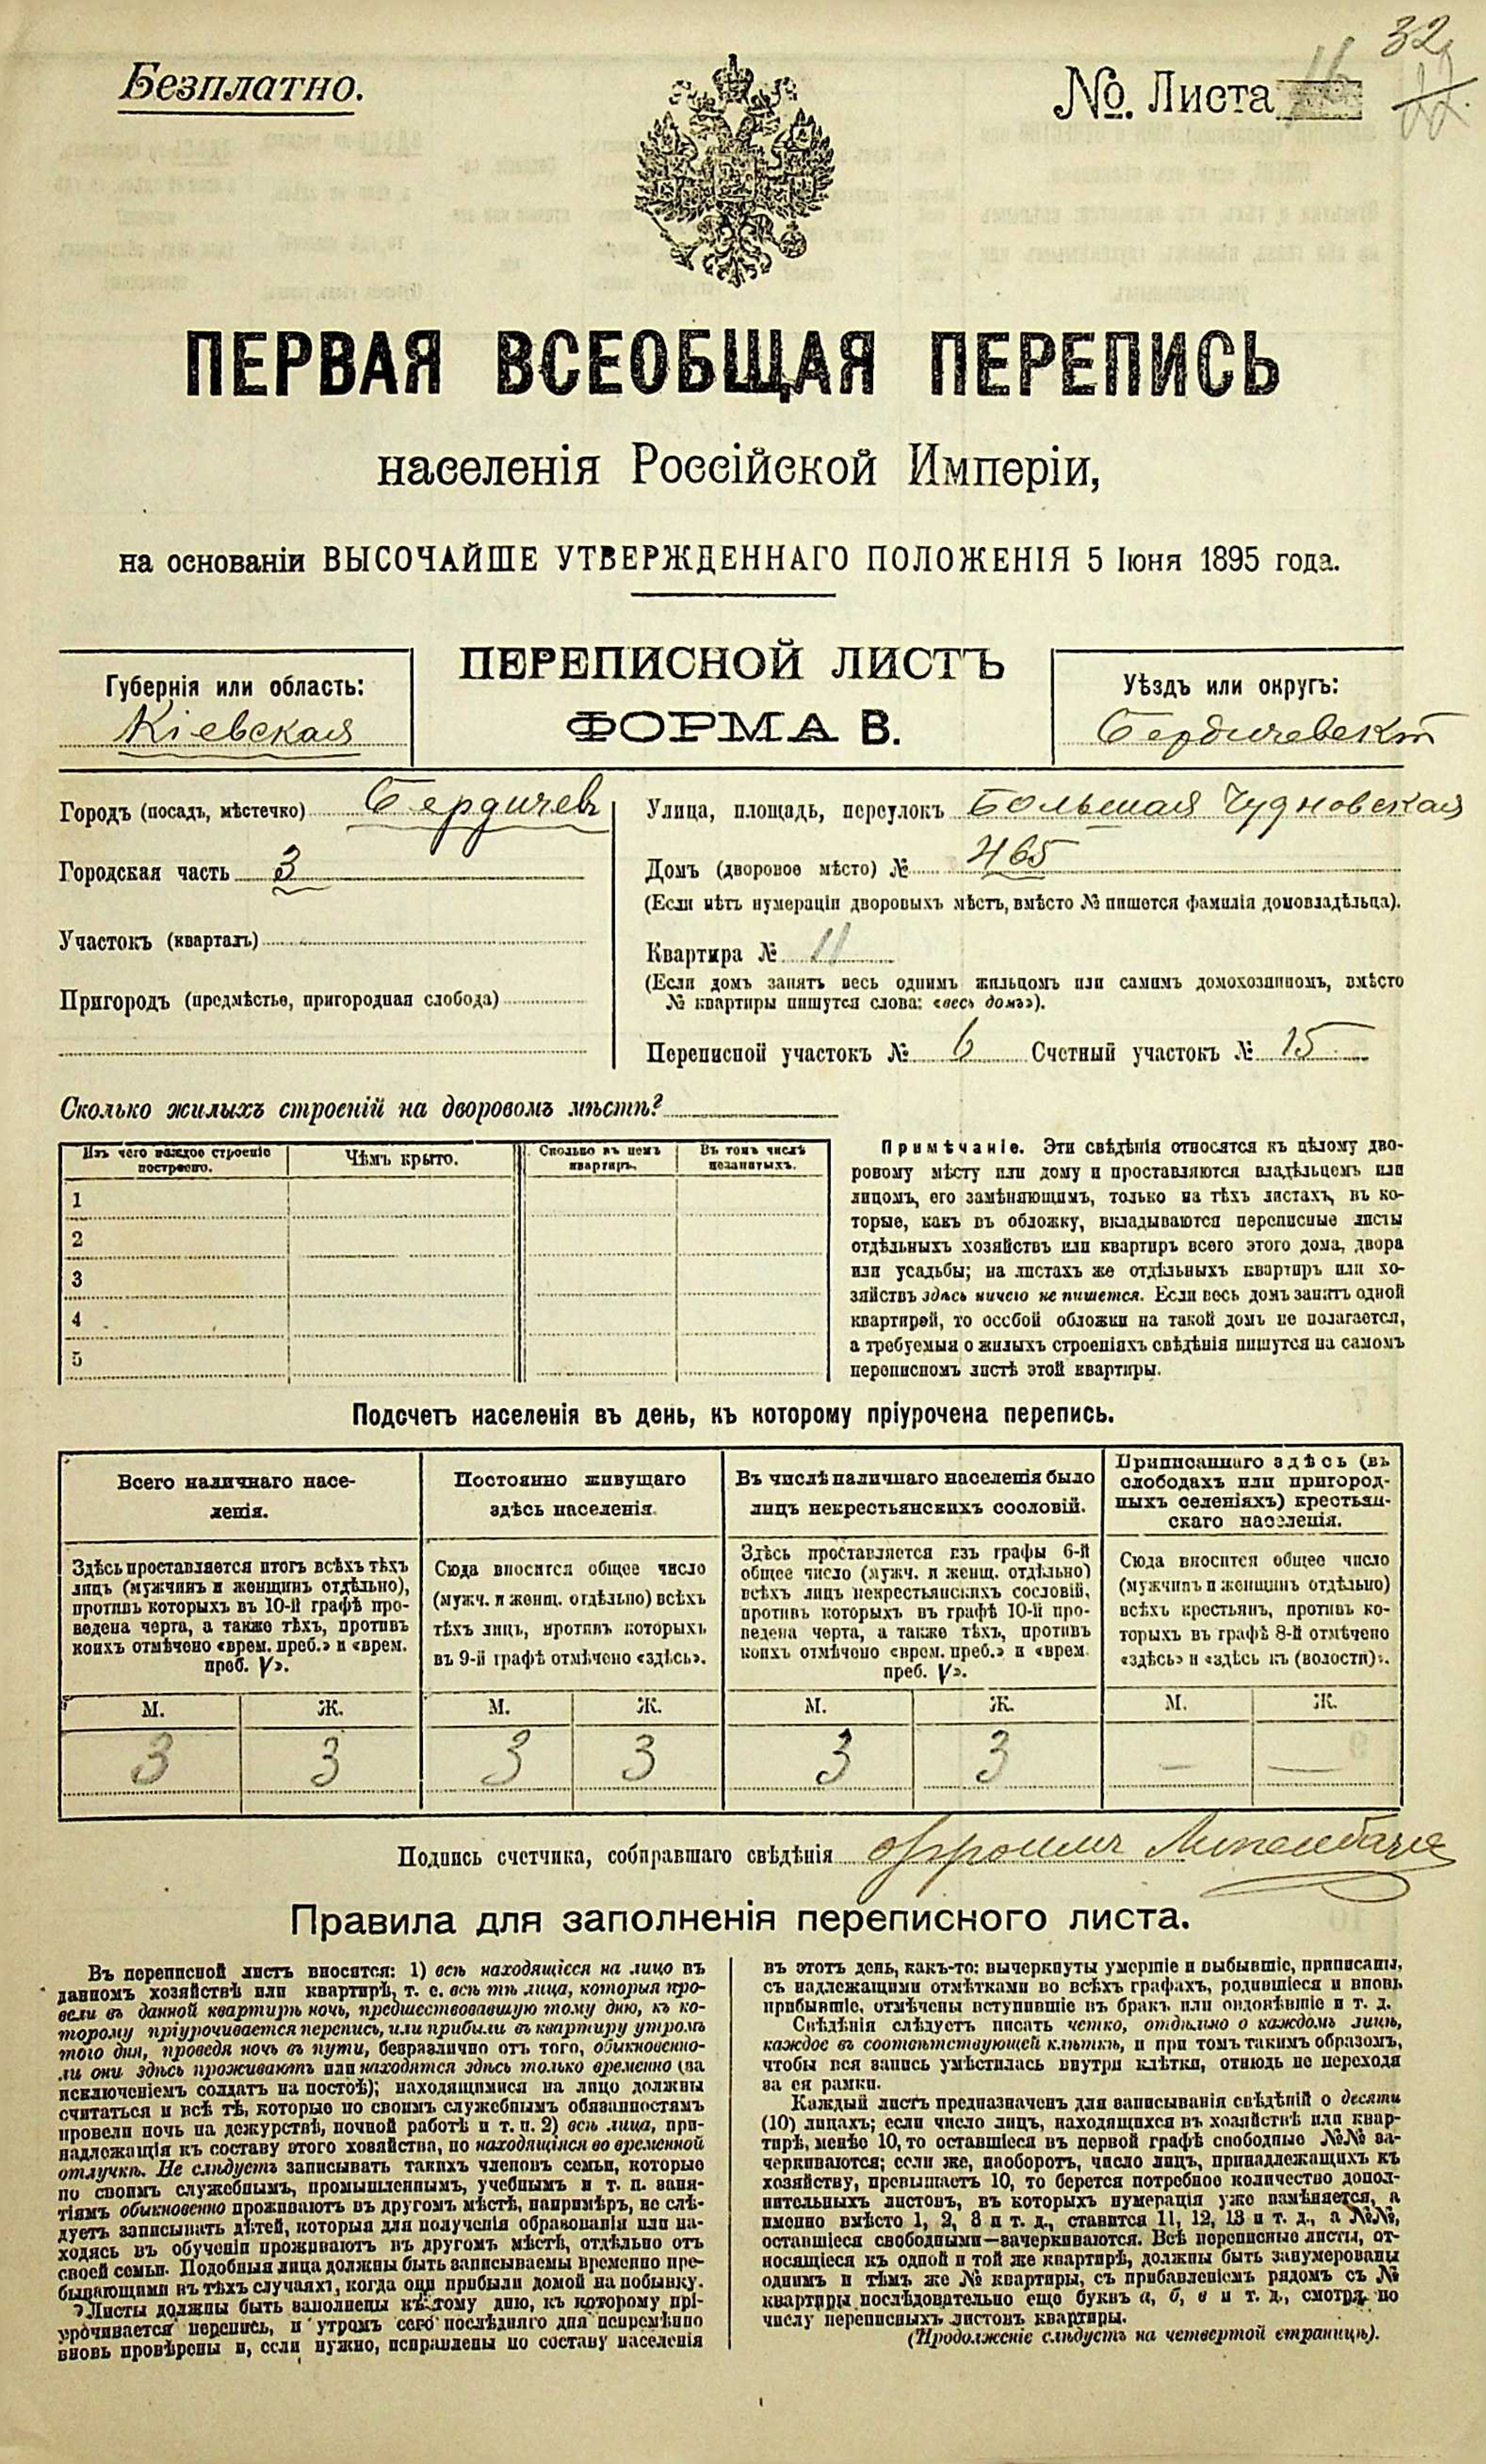 32
Безплатно.
№. Листа 16
ПЕРВАЯ ВСЕОБЩАЯ ПЕРЕПИСЬ
населенія Россійской Имперіи,
на основаніи ВЫСОЧАЙШЕ УТВЕРЖДЕННАГО ПОЛОЖЕНІЯ 5 Іюня 1895 года.
ПЕРЕПИСНОЙ ЛИСТЪ
ФОРМА В.
Губернія или область:
Кіевская
Уѣздъ или округъ:
Бердичевскій
Городъ (посадъ, мѣстечко) Бердичевъ
Городская часть 3
Участокъ (кварталъ)
Пригородъ (предмѣстье, пригородная слобода)
Улица, площадь, переулокъ Большая Чудновская
Домъ (дворовое мѣсто) № 465
(Если нѣтъ нумераціи дворовыхъ мѣстъ, вмѣсто № пишется фамилія домовладѣльца).
Квартира № 11
(Если домъ занятъ весь однимъ жильцомъ или самимъ домохозяиномъ, вмѣсто
№ квартиры пишутся слова: «весь домъ»).
Переписной участокъ № 6 Счетный участокъ № 15
Сколько жилыхъ строеній на дворовомъ мѣстѣ?
Изъ чего каждое строеніе
построено.
Чѣмъ крыто.
Сколько въ немъ
квартиръ.
Въ томъ числѣ
незанятыхъ.
1
2
3
4
5
Примѣчаніе. Эти свѣдѣнія относятся къ цѣлому дво-
ровому мѣсту или дому и проставляются владѣльцемъ или
лицомъ, его замѣняющимъ, только на тѣхъ листахъ, въ ко-
торые, какъ въ обложку, вкладываются переписные листы
отдѣльныхъ хозяйствъ или квартиръ всего этого дома, двора
или усадьбы; на листахъ же отдѣльныхъ квартиръ или хо-
зяйствъ здѣсь ничего не пишется. Если весь домъ занятъ одной
квартирой, то особой обложки на такой домъ не полагается,
а требуемыя о жилыхъ строеніяхъ свѣдѣнія пишутся на самомъ
переписномъ листѣ этой квартиры.
Подсчетъ населенія въ день, къ которому пріурочена перепись.
Всего наличнаго насе-
ленія.
Здѣсь проставляется итогъ всѣхъ тѣхъ
лицъ (мужчинъ и женщинъ отдѣльно),
противъ которыхъ въ 10-й графѣ про-
ведена черта, а также тѣхъ, противъ
коихъ отмѣчено «врем. преб.» и «врем.
преб. V».
М. Ж.
3 3
Постоянно живущаго
здѣсь населенія.
Сюда вносится общее число
(мужч. и женщ. отдѣльно) всѣхъ
тѣхъ лицъ, противъ которыхъ
въ 9-й графѣ отмѣчено «здѣсь».
М. Ж.
3 3
Въ числѣ наличнаго населенія было
лицъ некрестьянскихъ сословій.
Здѣсь проставляется изъ графы 6-й
общее число (мужч. и женщ. отдѣльно)
всѣхъ лицъ некрестьянскихъ сословій,
противъ которыхъ въ графѣ 10-й про-
ведена черта, а также тѣхъ, противъ
коихъ отмѣчено «врем. преб.» и «врем.
преб. V».
М. Ж.
3 3
Приписаннаго здѣсь (въ
слободахъ или пригород-
ныхъ селеніяхъ) крестьян-
скаго населенія.
Сюда вносится общее число
(мужчинъ и женщинъ отдѣльно)
всѣхъ крестьянъ, противъ ко-
торыхъ въ графѣ 8-й отмѣчено
«здѣсь» и «здѣсь къ (волости)».
М. Ж.
— —
Подпись счетчика, собиравшаго свѣдѣнія
Правила для заполненія переписного листа.
Въ переписной листъ вносятся: 1) всѣ находящіеся на лицо въ
данномъ хозяйствѣ или квартирѣ, т. е. всѣ тѣ лица, которыя про-
вели въ данной квартирѣ ночь, предшествовавшую тому дню, къ ко-
торому пріурочивается перепись, или прибыли въ квартиру утромъ
того дня, проведя ночь въ пути, безразлично отъ того, обыкновенно-
ли они здѣсь проживаютъ или находятся здѣсь только временно (за
исключеніемъ солдатъ на постоѣ); находящимися на лицо должны
считаться и всѣ тѣ, которые по своимъ служебнымъ обязанностямъ
провели ночь на дежурствѣ, ночной работѣ и т. п. 2) всѣ лица, при-
надлежащія къ составу этого хозяйства, но находящіяся во временной
отлучкѣ. Не слѣдуетъ записывать такихъ членовъ семьи, которые
по своимъ служебнымъ, промышленнымъ, учебнымъ и т. п. заня-
тіямъ обыкновенно проживаютъ въ другомъ мѣстѣ, напримѣръ, не слѣ-
дуетъ записывать дѣтей, которыя для полученія образованія или на-
ходясь въ обученіи проживаютъ въ другомъ мѣстѣ, отдѣльно отъ
своей семьи. Подобныя лица должны быть записываемы временно пре-
бывающими въ тѣхъ случаяхъ, когда они прибыли домой на побывку.
Листы должны быть заполнены къ тому дню, къ которому прі-
урочивается перепись, и утромъ сего послѣдняго дня непремѣнно
вновь провѣрены и, если нужно, исправлены по составу населенія
въ этотъ день, какъ-то: вычеркнуты умершіе и выбывшіе, приписаны,
съ надлежащими отмѣтками во всѣхъ графахъ, родившіеся и вновь
прибывшіе, отмѣчены вступившіе въ бракъ или овдовѣвшіе и т. д.
Свѣдѣнія слѣдуетъ писать четко, отдѣльно о каждомъ лицѣ,
каждое въ соотвѣтствующей клѣткѣ, и при томъ такимъ образомъ,
чтобы вся запись умѣстилась внутри клѣтки, отнюдь не переходя
за ея рамки.
Каждый листъ предназначенъ для записыванія свѣдѣній о десяти
(10) лицахъ; если число лицъ, находящихся въ хозяйствѣ или квар-
тирѣ, менѣе 10, то оставшіеся въ первой графѣ свободные №№ за-
черкиваются; если же, наоборотъ, число лицъ, принадлежащихъ къ
хозяйству, превышаетъ 10, то берется потребное количество допол-
нительныхъ листовъ, въ которыхъ нумерація уже измѣняется, а
именно вмѣсто 1, 2, 3 и т. д., ставится 11, 12, 13 и т. д., а №№,
оставшіеся свободными—зачеркиваются. Всѣ переписные листы, от-
носящіеся къ одной и той же квартирѣ, должны быть занумерованы
однимъ и тѣмъ же № квартиры, съ прибавленіемъ рядомъ съ №
квартиры послѣдовательно еще буквъ а, б, в и т. д., смотря по
числу переписныхъ листовъ квартиры.
(Продолженіе слѣдуетъ на четвертой страницѣ).